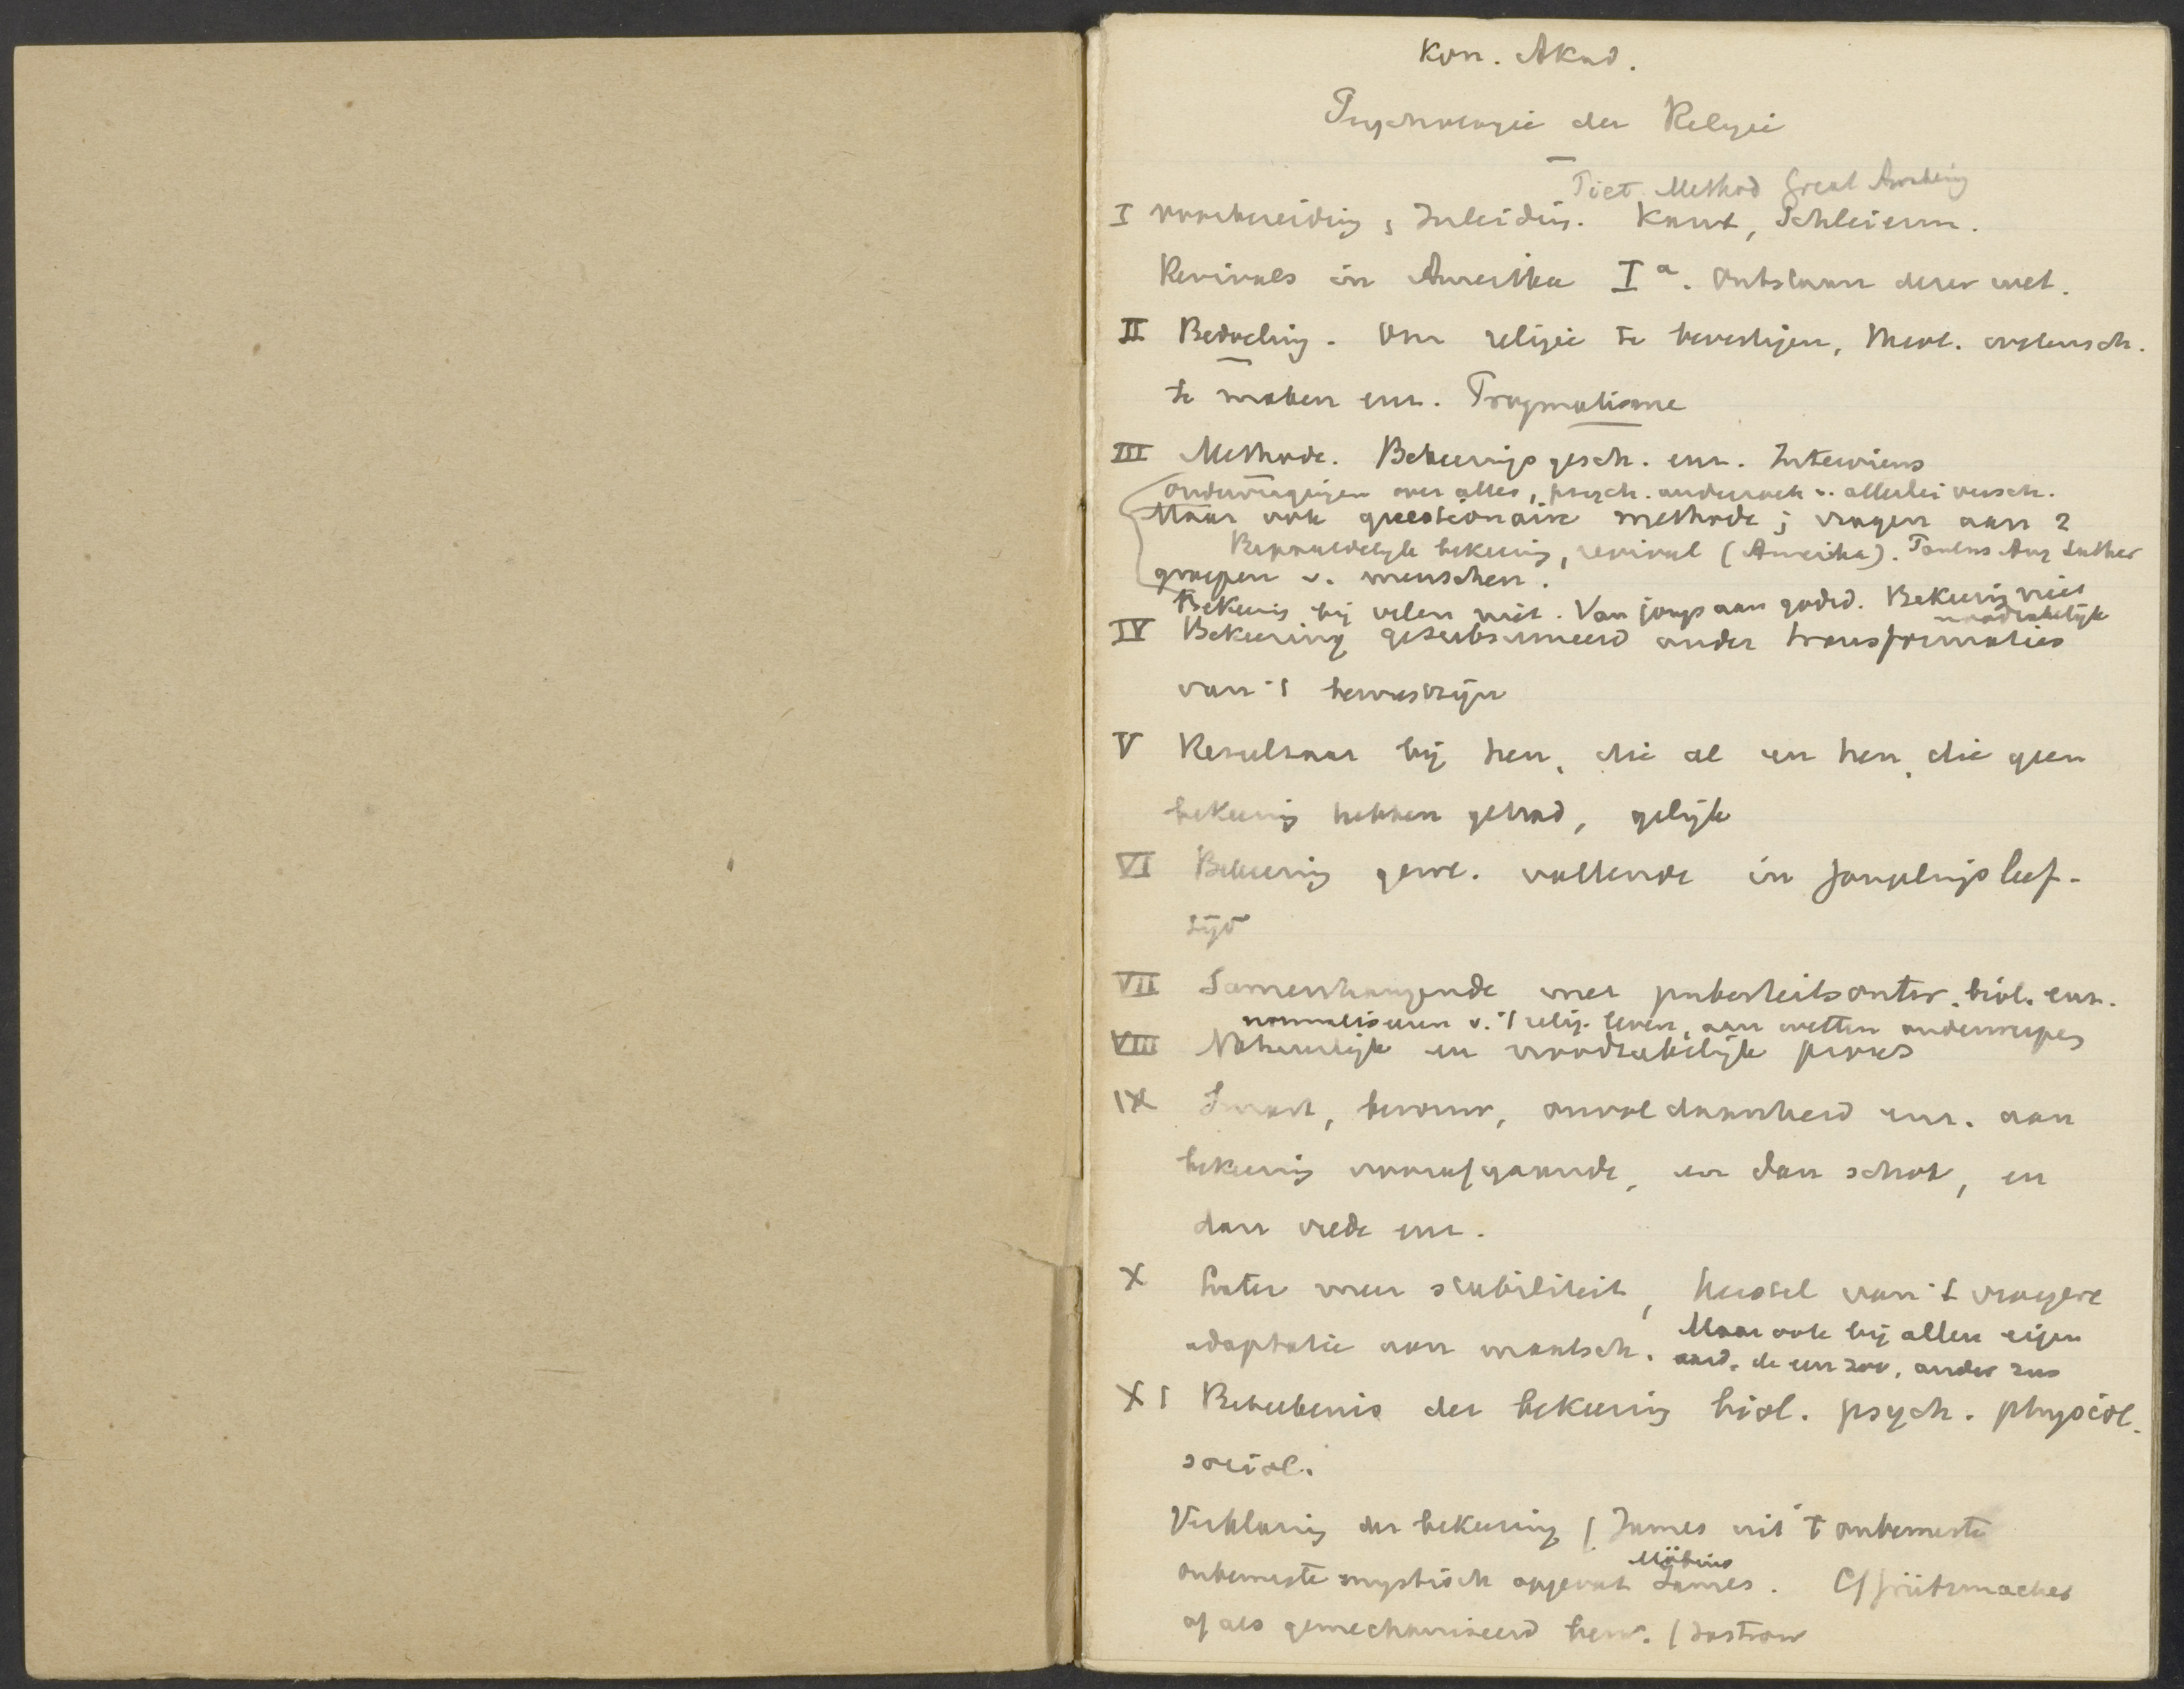 Kon. Akad.
Psychologie der Religie
Piet. Method Great Awakening
I voorbereiding, Inleiding. Kant, Schleierm.
Revivals in Amerika Iª. Ontstaan dezer wet.
II Bedoeling. Om religie te bevestigen, theol. wetensch.
te maken enz. Pragmatisme
III Methode. Bekeeringsgesch. enz. Interviews
ondervragingen over alles, psych. onderzoek v. allerlei versch.
Maar ook questionaire methode; vragen aan 2
Bepaaldelijk bekeering, revival (Amerika). Paulus Aug Luther
groepen v. menschen.
Bekeering bij velen niet. Van jongs aan godsd. Bekeering niet
noodzakelijk
IV Bekeering gesubsumeerd onder transformaties
van 't bewustzijn
V Resultaat bij hen, die al en hen, die geen
bekeering hebben gehad, gelijk
VI Bekeering gew. vallende in Jongelingsleef-
tijd
VII Samenhangende met puberteitsontw. biol. enz.
normaliseeren v. 't relig. leven, aan wetten onderworpen
VIII Natuurlijk en noodzakelijk proces
IX Smart, berouw, onvoldaanheid enz. aan
bekeering voorafgaande, en dan schok, en
dan vrede enz.
X Later meer stabiliteit, herstel van 't vroegere
adaptatie aan maatsch. Maar ook bij allen eigen
aard, de een zoo, ander zus
XI Beteekenis der bekeering biol. psych. physiol.
sociol.
Verklaring der bekeering ( James uit 't onbewuste
Möbius
onbewuste mystisch opgevat James. Cf Grützmacher
of als gemechaniseerd bew. ( Jastrow